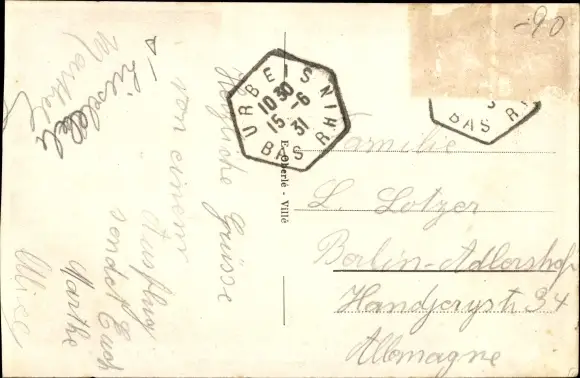 Herzliche Grüsse
von einem
Ausflug
sendet Euch
Marthe
Alice
Liselele
Marthele
-90
URBEIS
10 30
15 -6
31
BAS RHIN
BAS R
E. Oberlé - Villé
Familie
L. Lotzer
Berlin-Adlershof
Handjerystr 34
Allemagne